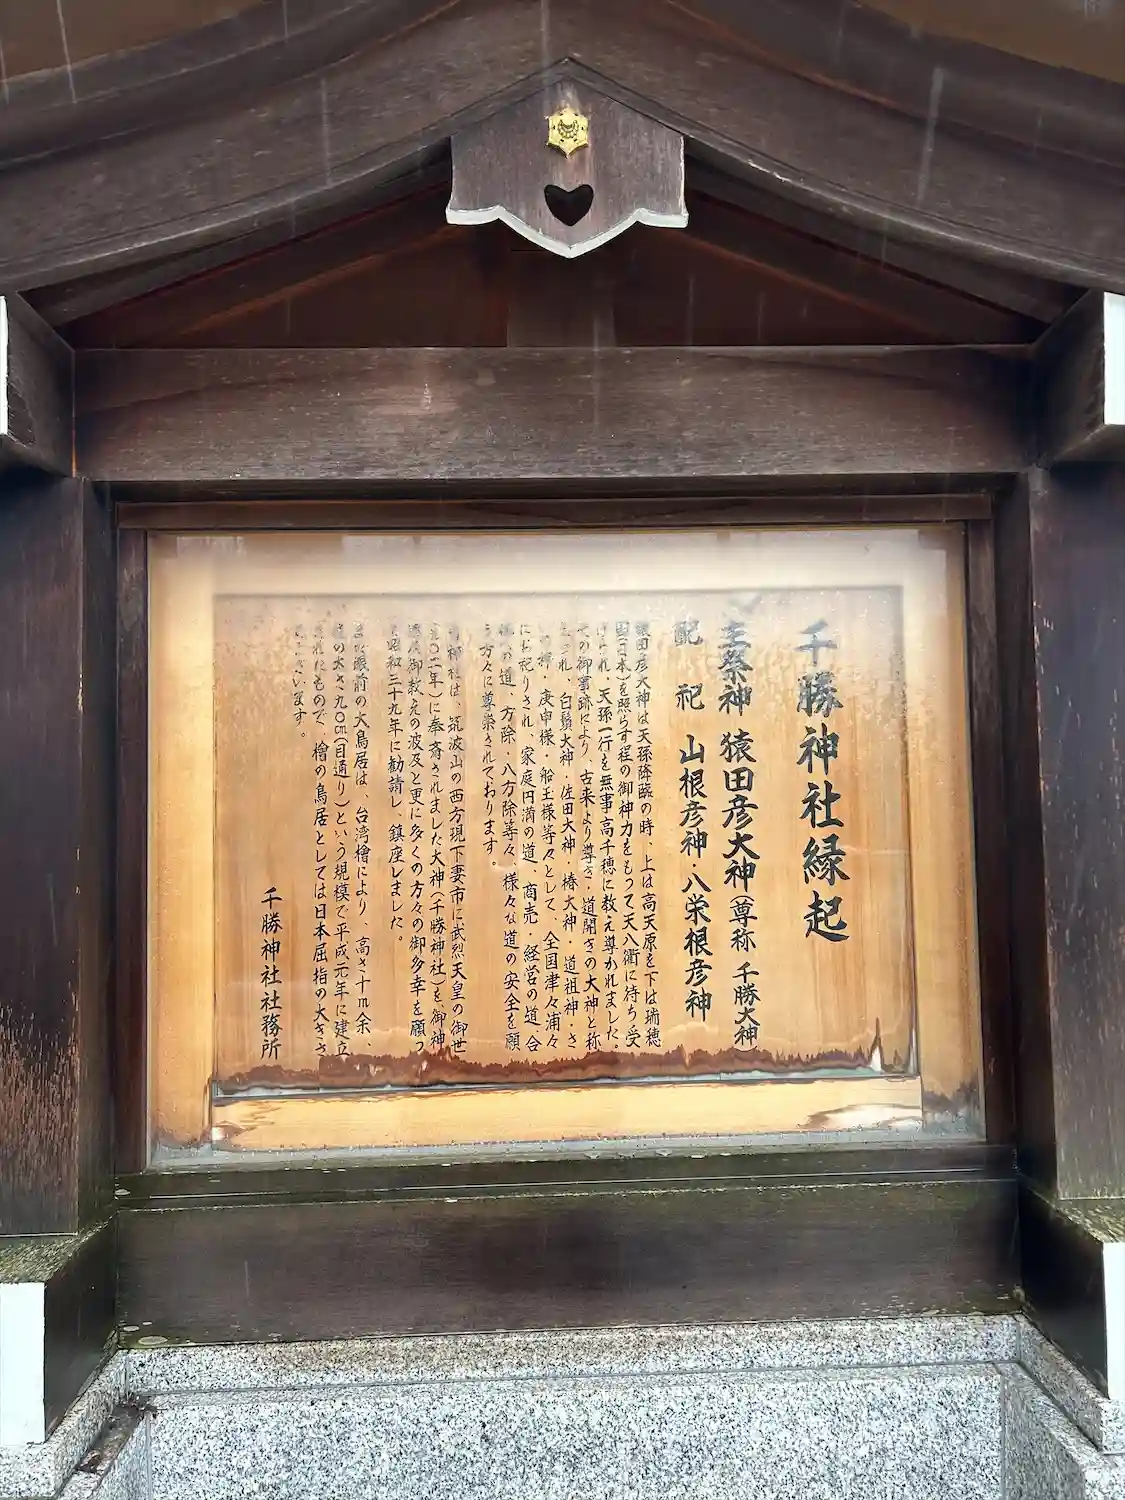 千勝神社縁起
主祭神 猿田彦大神(尊称 千勝大神)
配祀 山根彦神・八栄根彦神
猿田彦大神は天孫降臨の時、上は高天原を下は瑞穂
国(日本)を照らす程の御神力をもって天八衢に待ち受
けられ、天孫一行を無事高千穂に教え導かれました。
その御事跡により、古来より導き・道開きの大神と称
えられ、白鬚大神・佐田大神・椿大神・道祖神・さ
神・庚申様・船玉様等々として、全国津々浦々
にお祀りされ、家庭円満の道、商売・経営の道、合
の道、方除・八方除等々、様々な道の安全を願
う方々に尊崇されております。
神社は、筑波山の西方現下妻市に武烈天皇の御世
(五〇二年)に奉斎されました大神(千勝神社)を、御神
徳及御教えの波及と更に多くの方々の御多幸を願っ
て昭和三十九年に勧請し、鎮座しました。
また殿前の大鳥居は、台湾檜により、高さ十m余、
柱の太さ九〇cm(目通り)という規模で平成元年に建立
されたもので、檜の鳥居としては日本屈指の大きさ
でございます。
千勝神社社務所